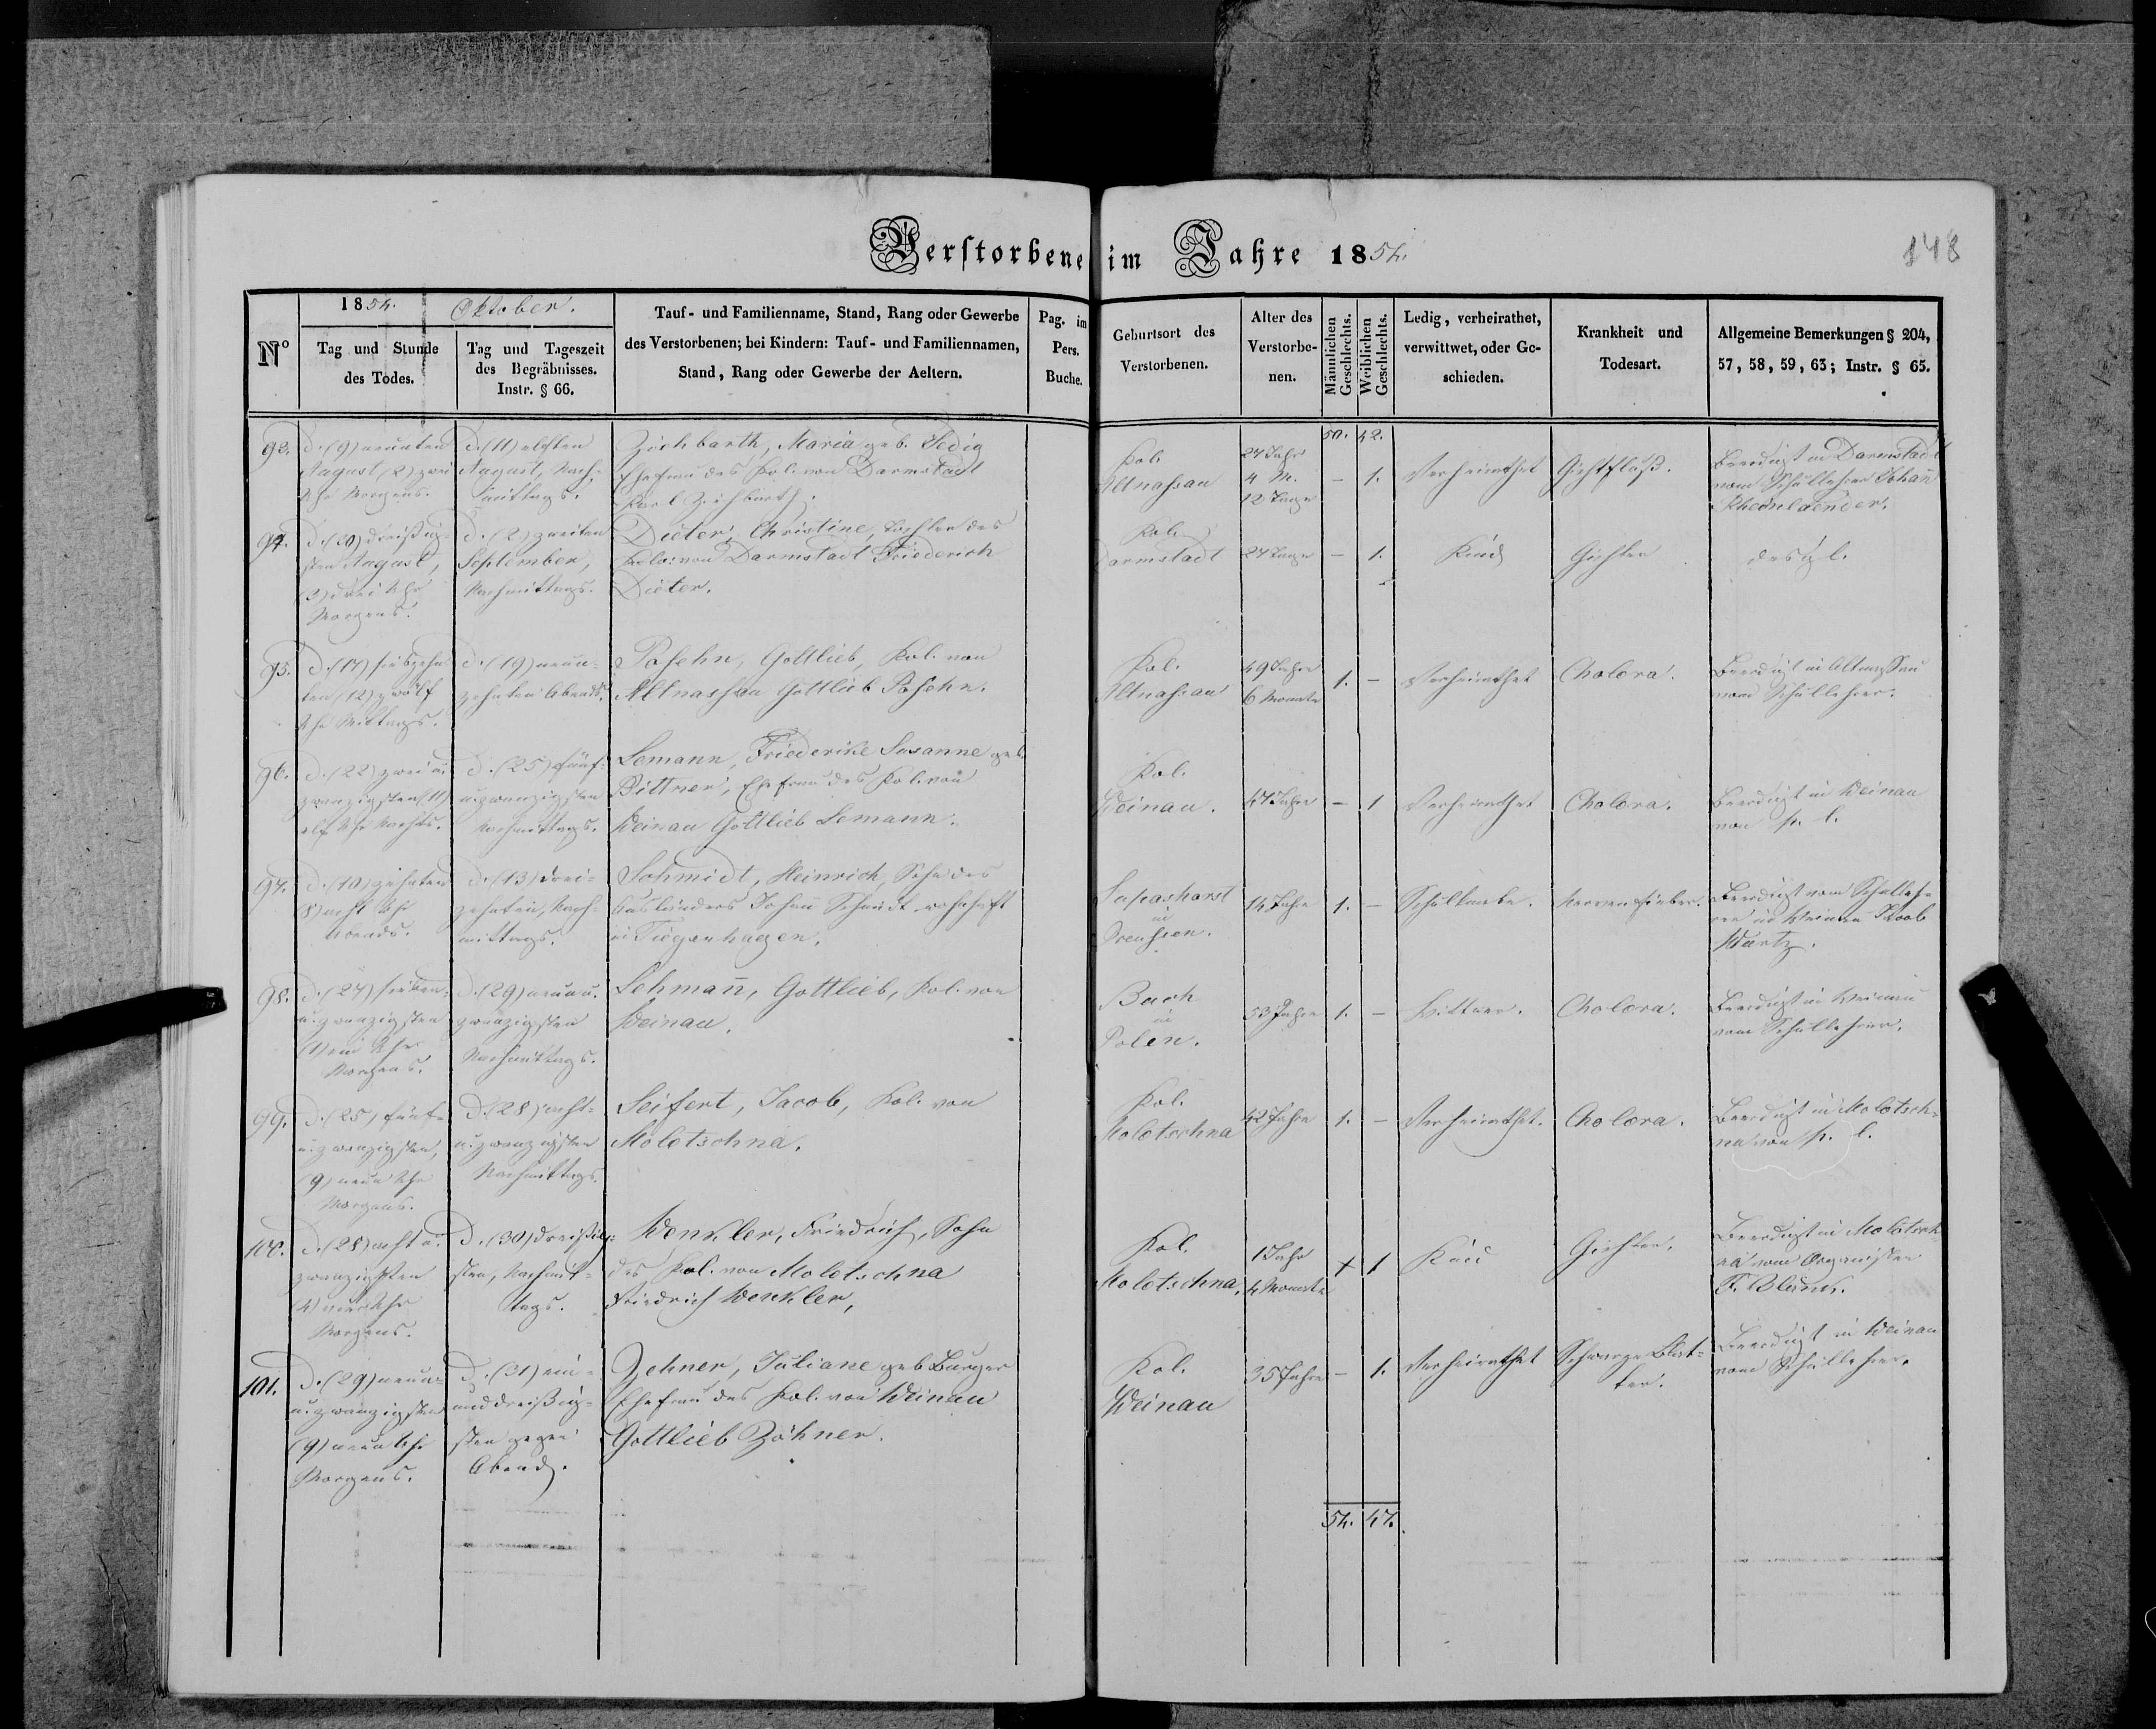 Verstorbene im Jahre 1854.
148
1854. Oktober.
N°
Tag und Stunde
des Todes.
Tag und Tageszeit
des Begräbnisses.
Instr. § 66.
Tauf- und Familienname, Stand, Rang oder Gewerbe
des Verstorbenen; bei Kindern: Tauf- und Familiennamen,
Stand, Rang oder Gewerbe der Aeltern.
Pag. im
Pers.
Buche.
Geburtsort des
Verstorbenen.
Alter des
Verstorbe-
nen.
Männlichen
Geschlechts.
Weiblichen
Geschlechts.
Ledig, verheirathet,
verwittwet, oder Ge-
schieden.
Krankheit und
Todesart.
Allgemeine Bemerkungen § 204,
57, 58, 59, 63; Instr. § 65.
50. 42.
d. (9) neunten
August, (2) zwei
Uhr Morgens.
d. (11) elften
August, Nach-
mittags.
Maria geb.
Ehefrau des Kol. von Darmstadt
Karl
Kol.
Altnassau
27 Jahr
4 M.
12 Tage
– 1.
Verheirathet
Gichtfluß.
Beerdigt in Darmstadt
vom Schullehrer Johañ
Rheinlaender.
d. (30) dreißig-
sten August,
(3) drei Uhr
Morgens.
d. (2) zweiten
September,
Nachmittags.
Dieter, Christine, Tochter des
Kolo: von Darmstadt Friederich
Dieter.
Kol.
Darmstadt
27 Tage
– 1.
Kind
Gichter
desgl.
95.
d. (17) siebzehn
ten (12) zwölf
Uhr Mittags.
d. (19) neun-
zehnten Abends.
Posehn, Gottlieb, Kol. von
Altnassau Gottlieb Posehn.
Kol.
Altnassau
49 Jahre
6 Monate
1. –
Verheirathet
Cholera.
Beerdigt in Altnassau
vom Schullehrer.
96.
d. (22) zwei u.
zwanzigsten (11)
elf Uhr Nachts.
d. (25) fünf-
u. zwanzigsten
Nachmittags.
Lemann, Friederike Susanne geb.
Bittner, Ehefrau des Kol. von
Weinau Gottlieb Lemann.
Kol.
Weinau.
47 Jahre
– 1
Verheirathet
Cholera.
Beerdigt in Weinau
97.
d. (10) zehnten
(8) acht Uhr
Abends.
d. (13) drei-
zehnten, Nach-
mittags.
Schmidt, Heinrich, Sohn des
Ausländers Johann Schmidt wohnhaft
in Tiegenhagen.
in
Preussen.
14 Jahre
1. –
Schulknabe.
Nervenfieber.
Beerdigt vom Schulleh-
rer in Weinau Jakob
Wurtz.
98.
d. (27) sieben-
u. zwanzigsten
(1) ein Uhr
Morgens.
d. (29) neun u.
zwanzigsten
Nachmittags.
Lehmañ, Gottlieb, Kol. von
Weinau.
Buch
in
Polen.
53 Jahre
1. –
Wittwer.
Cholera.
Beerdigt in Weinau
vom Schullehrer.
99.
d. (25) fünf-
u. zwanzigsten,
(9) neun Uhr
Morgens.
d. (28) acht-
u. zwanzigsten
Nachmittags.
Seifert, Jacob, Kol. von
Molotschna.
Kol.
Molotschna
42 Jahre
1. –
Verheirathet.
Cholera.
Beerdigt in Molotsch-
100.
d. (28) acht u.
zwanzigsten
(4) vier Uhr
Morgens.
d. (30) dreißig-
sten, Nachmit-
tags.
Wenkler, Friedrich, Sohn
des Kol. von Molotschna
Friedrich Wenkler,
Kol.
Molotschna,
1 Jahr
4 Monate
1
Kind
Gichter.
Beerdigt in Molotsch
na vom Organisten
101.
d. (29) neun-
u. zwanzigsten
(9) neun Uhr
Morgens.
d. (31) ein-
und dreißig-
sten gegen
Abend.
Zehner, Juliane geb Burger
Ehefrau des Kol. von Weinau
Gottlieb Zöhner.
Kol.
Weinau
35 Jahre
– 1.
Verheirathet
Schwarze Blat-
ter.
Beerdigt in Weinau
vom Schullehrer.
54. 47.